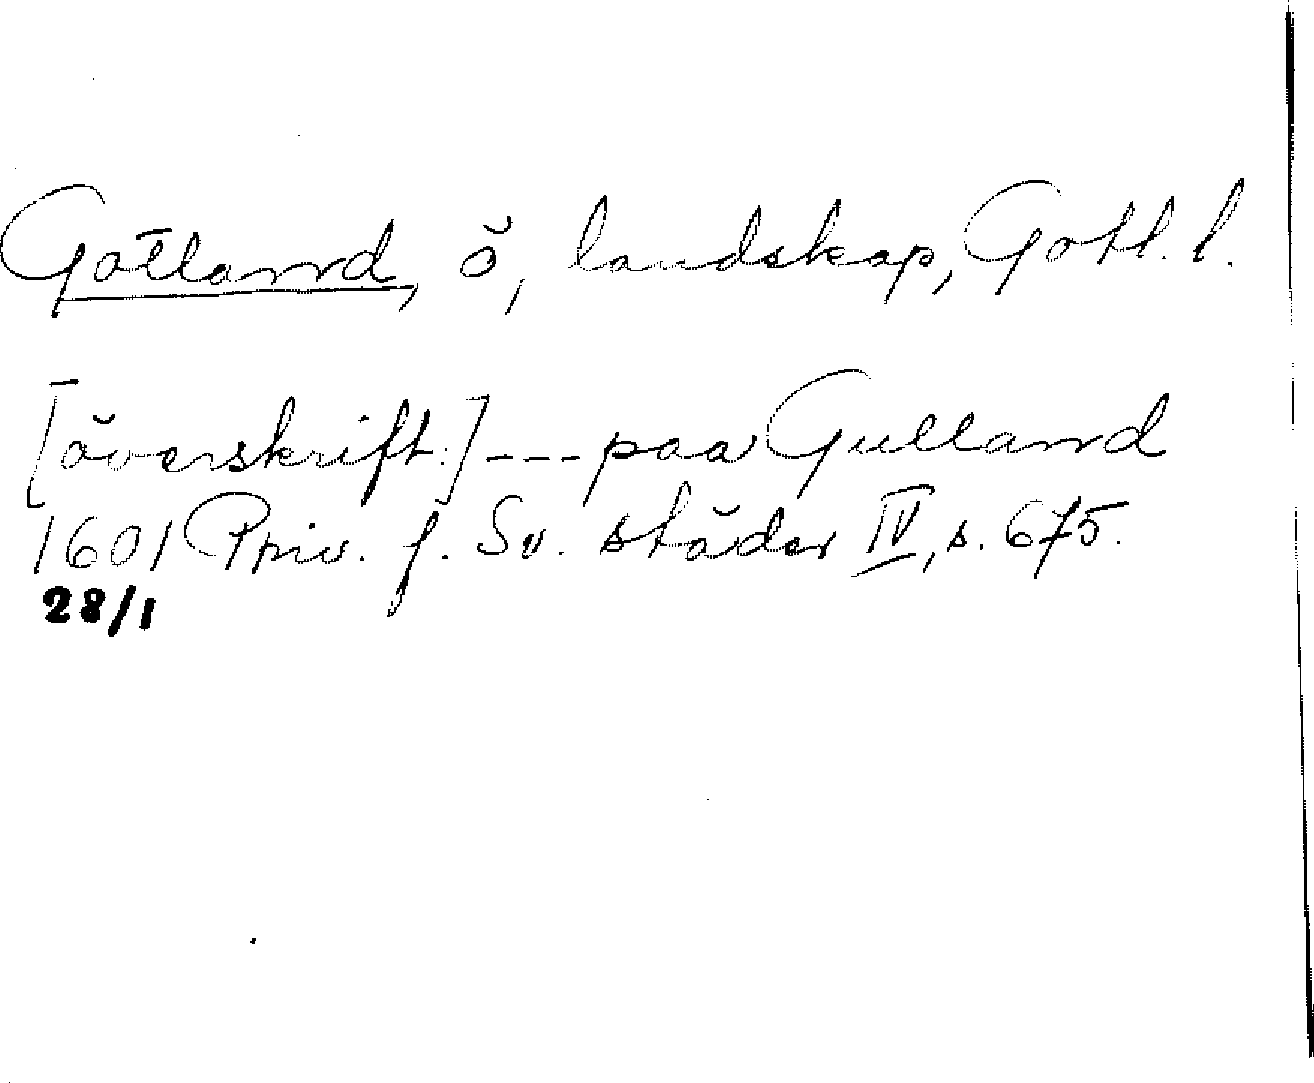 Gotland, ö, landskap, Gotl. l.
[överskrift:] --- paa Gulland
1601 Priv. f. Sv. städer IV, s. 675.
28/1